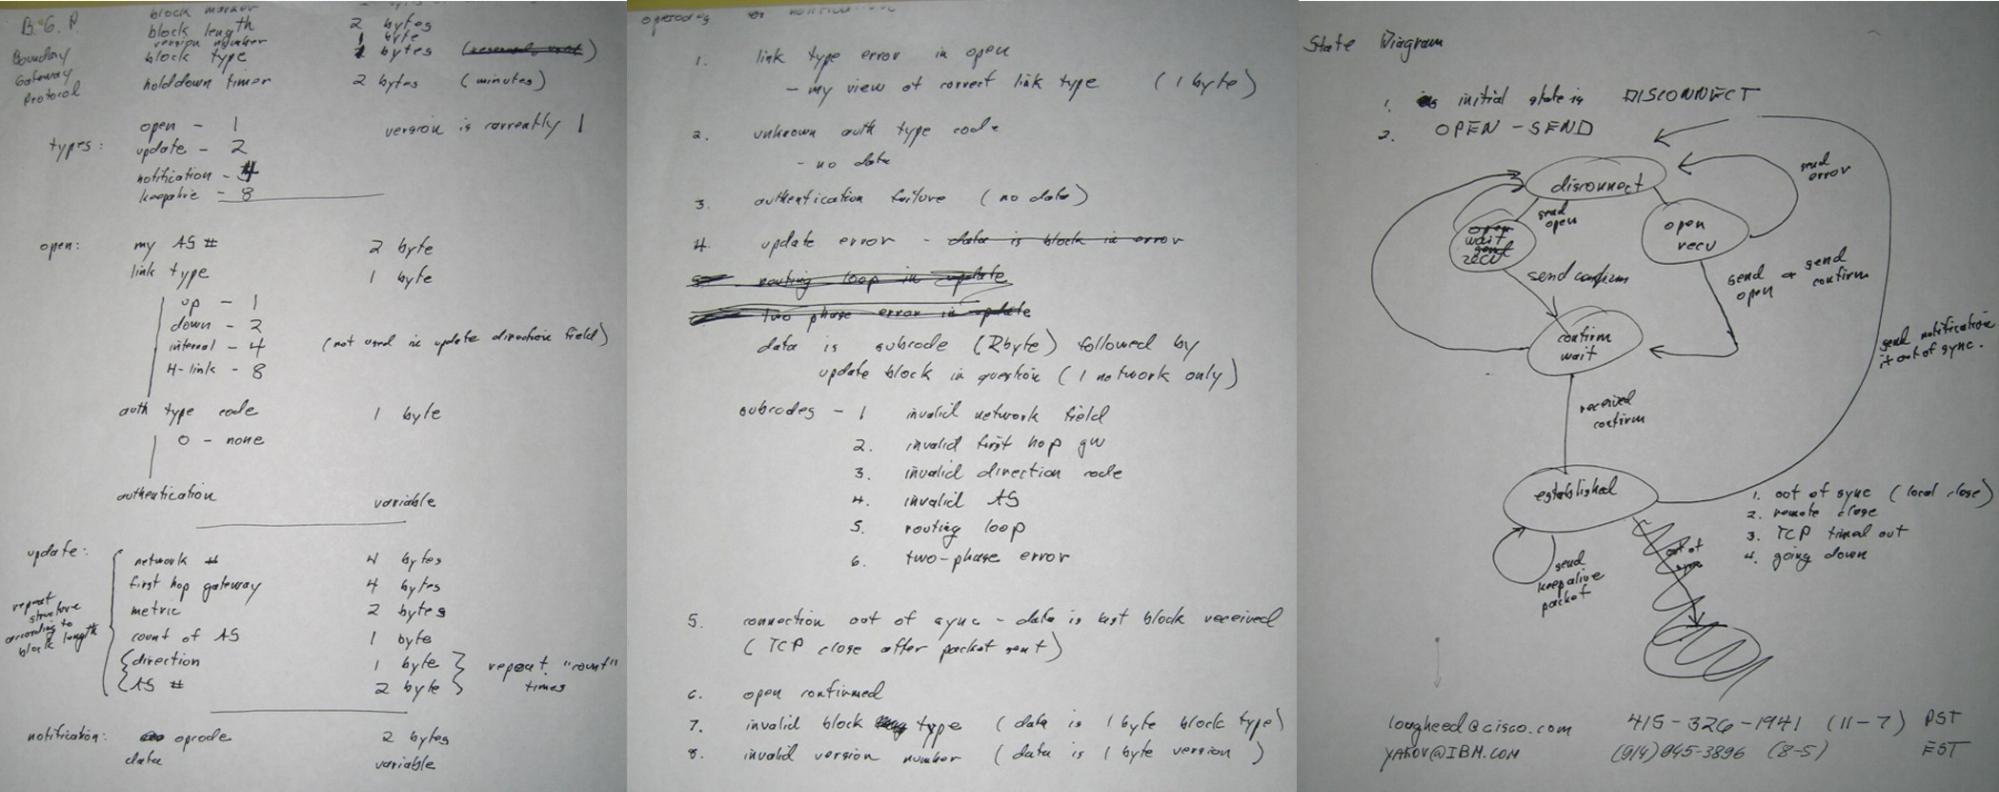 B.G.P.
Boundary
Gateway
Protocol
block marker bytes
block length 2 bytes
version number 1 byte
block type bytes
holddown timer 2 bytes (minutes)
types:
open - 1 version is currently 1
update - 2
notification - 4
keepalive - 8
open: my AS # 2 byte
link type 1 byte
up - 1
down - 2
internal - 4 (not used in update direction field)
H-link - 8
auth type code 1 byte
0 - none
authentication variable
update:
repeat
structure
according to
block length
network # 4 bytes
first hop gateway 4 bytes
metric 2 bytes
count of AS 1 byte
direction 1 byte
AS # 2 byte
repeat "count"
times
notification: opcode 2 bytes
data variable
opcodes notification
1. link type error in open
- my view of correct link type (1 byte)
2. unknown auth type code
- no data
3. authentication failure (no data)
4. update error - data is block in error
routing loop in update
two phase error in update
data is subcode (2byte) followed by
update block in question (1 network only)
subcodes - 1 invalid network field
2. invalid first hop gw
3. invalid direction code
4. invalid AS
5. routing loop
6. two-phase error
5. connection out of sync - data is last block received
(TCP close after packet sent)
6. open confirmed
7. invalid block type (data is 1 byte block type)
8. invalid version number (data is 1 byte version)
State Diagram
1. initial state is DISCONNECT
2. OPEN - SEND
disconnect
send
error
send
open
open
wait
send
recv
open
recv
send confirm
send
open
or send
confirm
confirm
wait
send notification
if out of sync.
received
confirm
established
1. out of sync (local close)
2. remote close
3. TCP timed out
4. going down
out of
sync
send
keepalive
packet
lougheed@cisco.com 415-326-1941 (11-7) PST
YAKOV@IBM.COM (914)945-3896 (8-5) EST